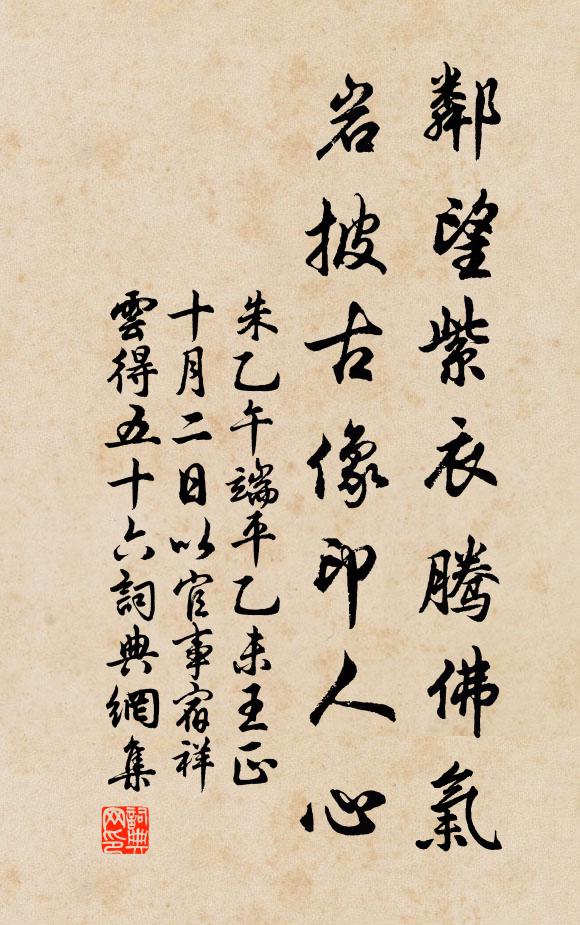 鄰望紫衣騰佛氣
岩披古像印人心
朱乙午端平乙未王正
十月二日以官事宿祥
雲得五十六詞典網集
詞典网印